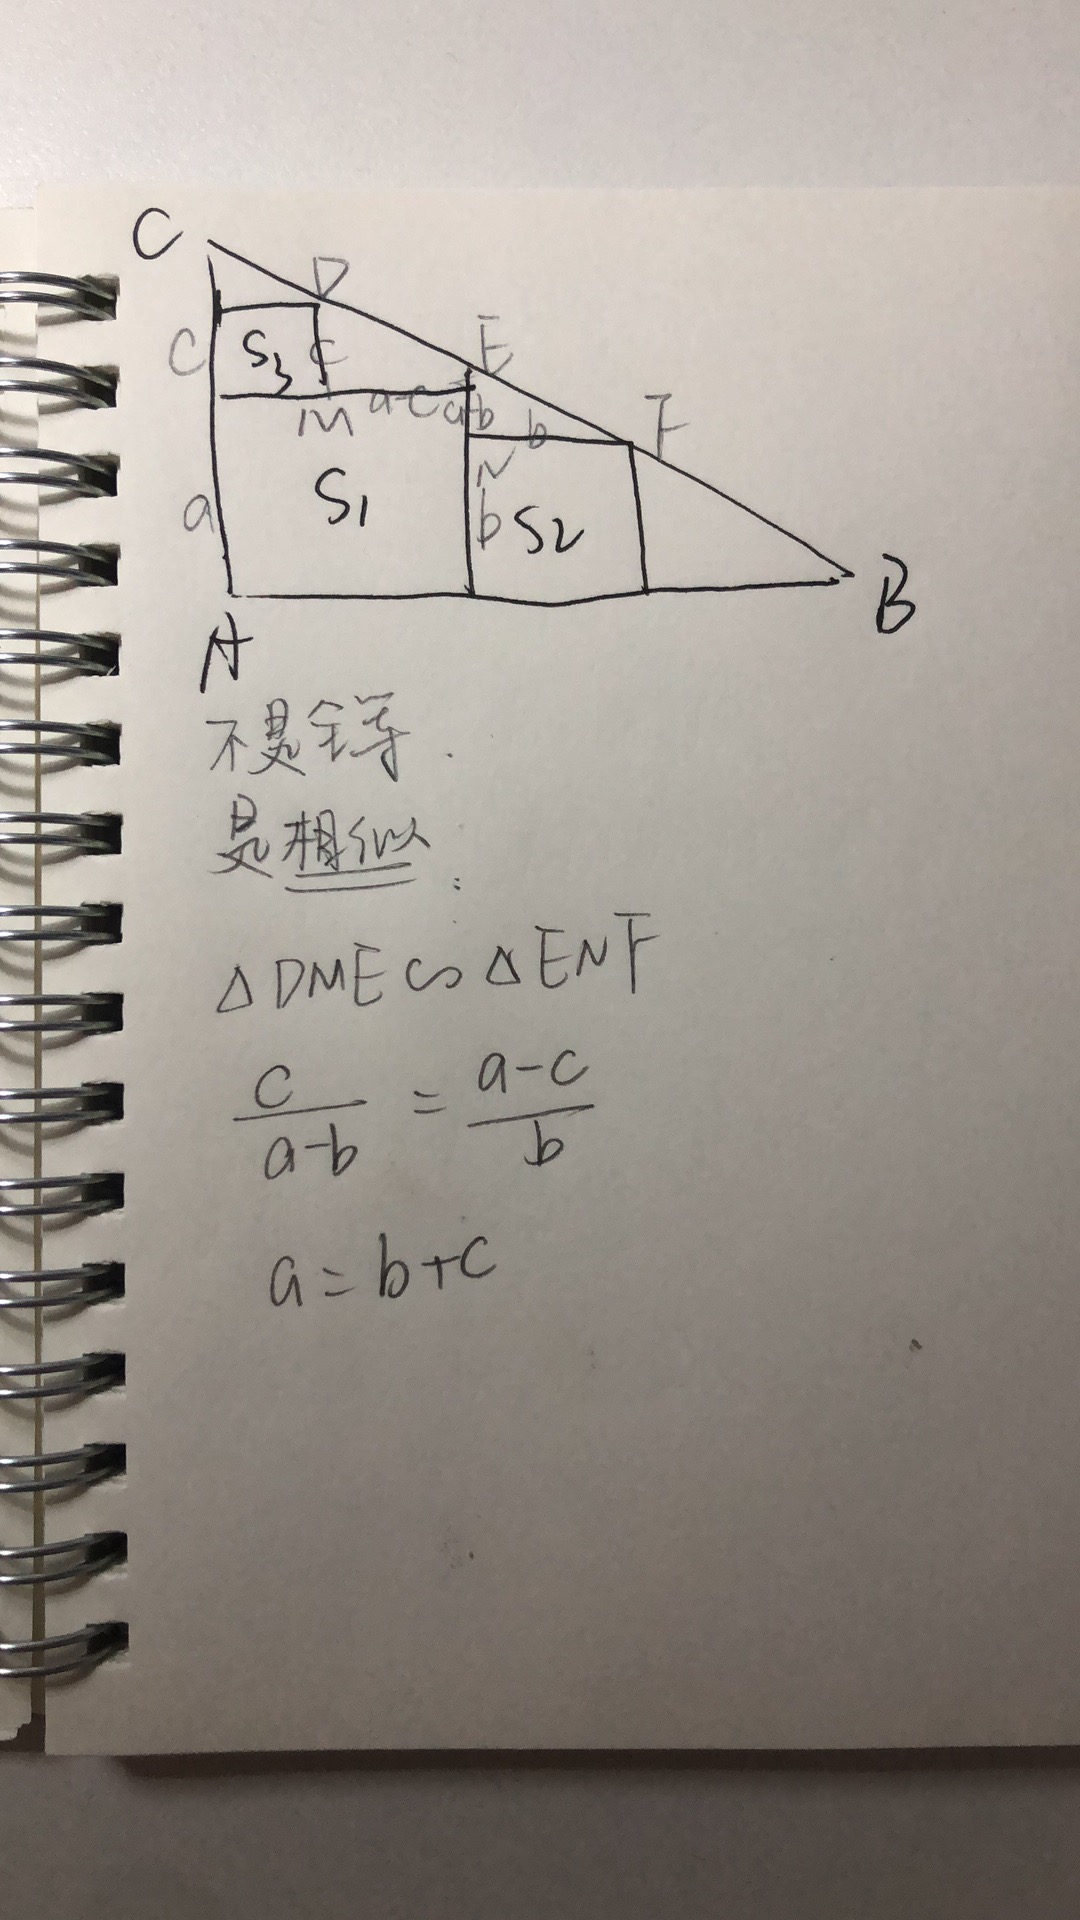 C
D
E
C S3 c
M a-c a-b b F
N
a S1 b S2
A B
不是全等.
是相似:
△DME∽△ENF
c/a-b = a-c/b
a=b+c